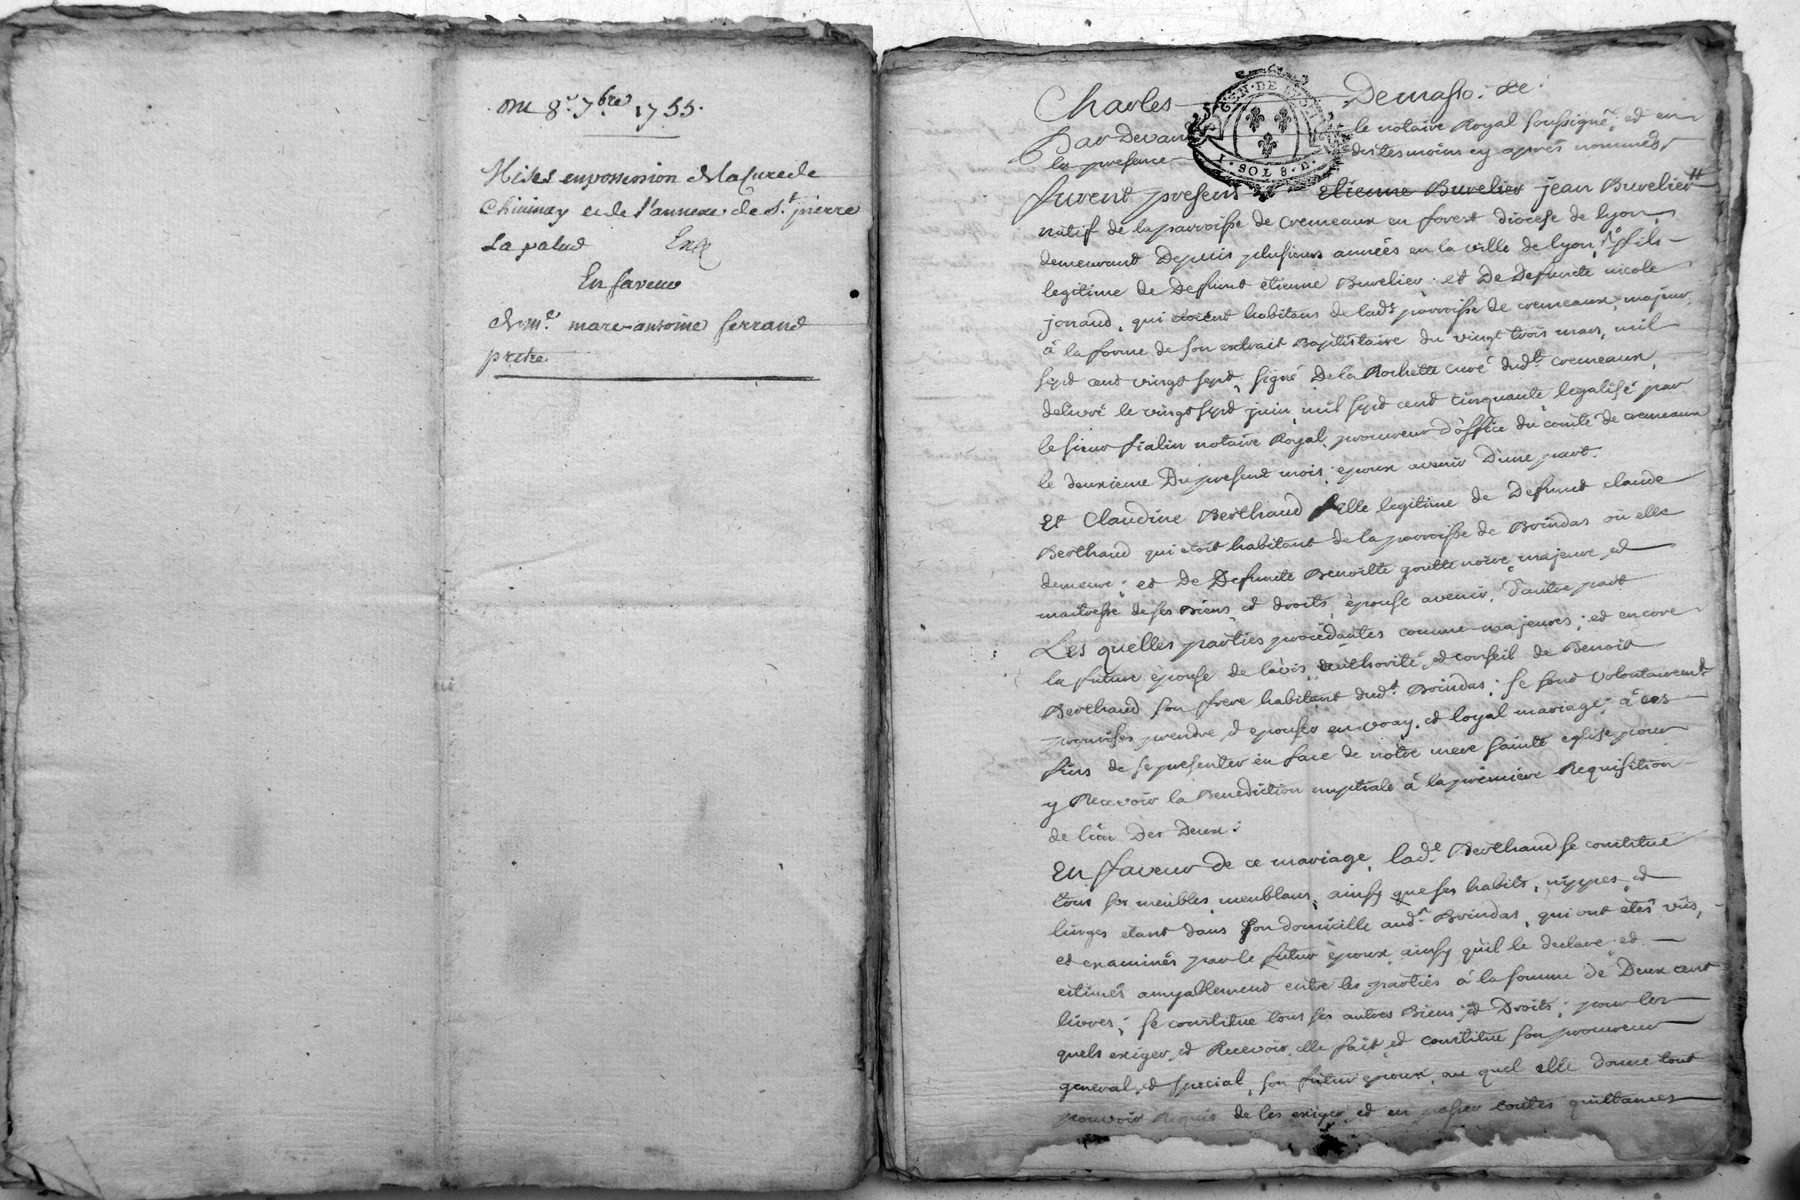 Du 8.e 7bre 1755.
Mises en possession de la cure de
Chivinay et de l'annexe de St. pierre
La palud
En faveur
de mre. marc-antoine ferrand
pretre
Charles Demasso: &c:
GEN·DE LYON
1·SOL 8·D.
Par Devant le notaire Royal soussigné, et en
la presence des tesmoins cy après nommés
furent presens etienne Buvelier jean Buvelier #
natif de la parroisse de cremeaux en forest diocese de lyon,
demeurant Depuis plusieurs années en la ville de lyon, fils
legitime de Defunt étienne Buvelier et De Defuncte nicole
jonaud, qui étoient habitans de lade. parroisse de cremeaux, majeur,
à la forme de son extrait Baptistaire du vingt trois mars, mil
sept cent vingt sept, signé De la Rochette curé dudt. cremeaux,
delivré le vingt sept juin mil sept cent cinquante, legalisé par
le sieur fialin notaire Royal, procureur d'office du comté de cremeaux
le deuxieme Du present mois, epoux avenir D'une part.
Et Claudine Berthaud fille legitime de Defunct claude
Berthaud qui étoit habitant de la parroisse de Brindas où elle
demeure, et De Defuncte Benoitte gouttenoire, majeure, et
maitresse de ses Biens, et droits, épouse avenir, D'autre part
Les quelles parties procédantes comme majeures, et encore
la future épouse de l'avis, authorité, et conseil de Benoit
Berthaud son frere habitant dudt. Brindas; se sont volontairement
promises prendre, et epouser en vray, et loyal mariage; à ces
fins de se presenter en face de notre mere sainte eglise pour
y Recevoir la Benediction nuptiale à la premiere Requisition
de l'un Des Deux:
En faveur De ce mariage, lade. Berthaud se constitue
tous ses meubles meublans, ainsy que ses habits, nippes, et
linges étant dans son domicille audt. Brindas, qui ont étés vûs,
et examinés par le futur epoux, ainsy qu'il le declare, et
estimés amyablement entre les parties à la somme de Deux cent
livres; se constitue tous ses autres Biens, et Droits; pour les
quels exiger, et Recevoir, elle fait, et constitue son procureur
general, et special, son futur epoux, au quel elle donne tout
pouvoir Requis de les exiger, et en passer toutes quittances